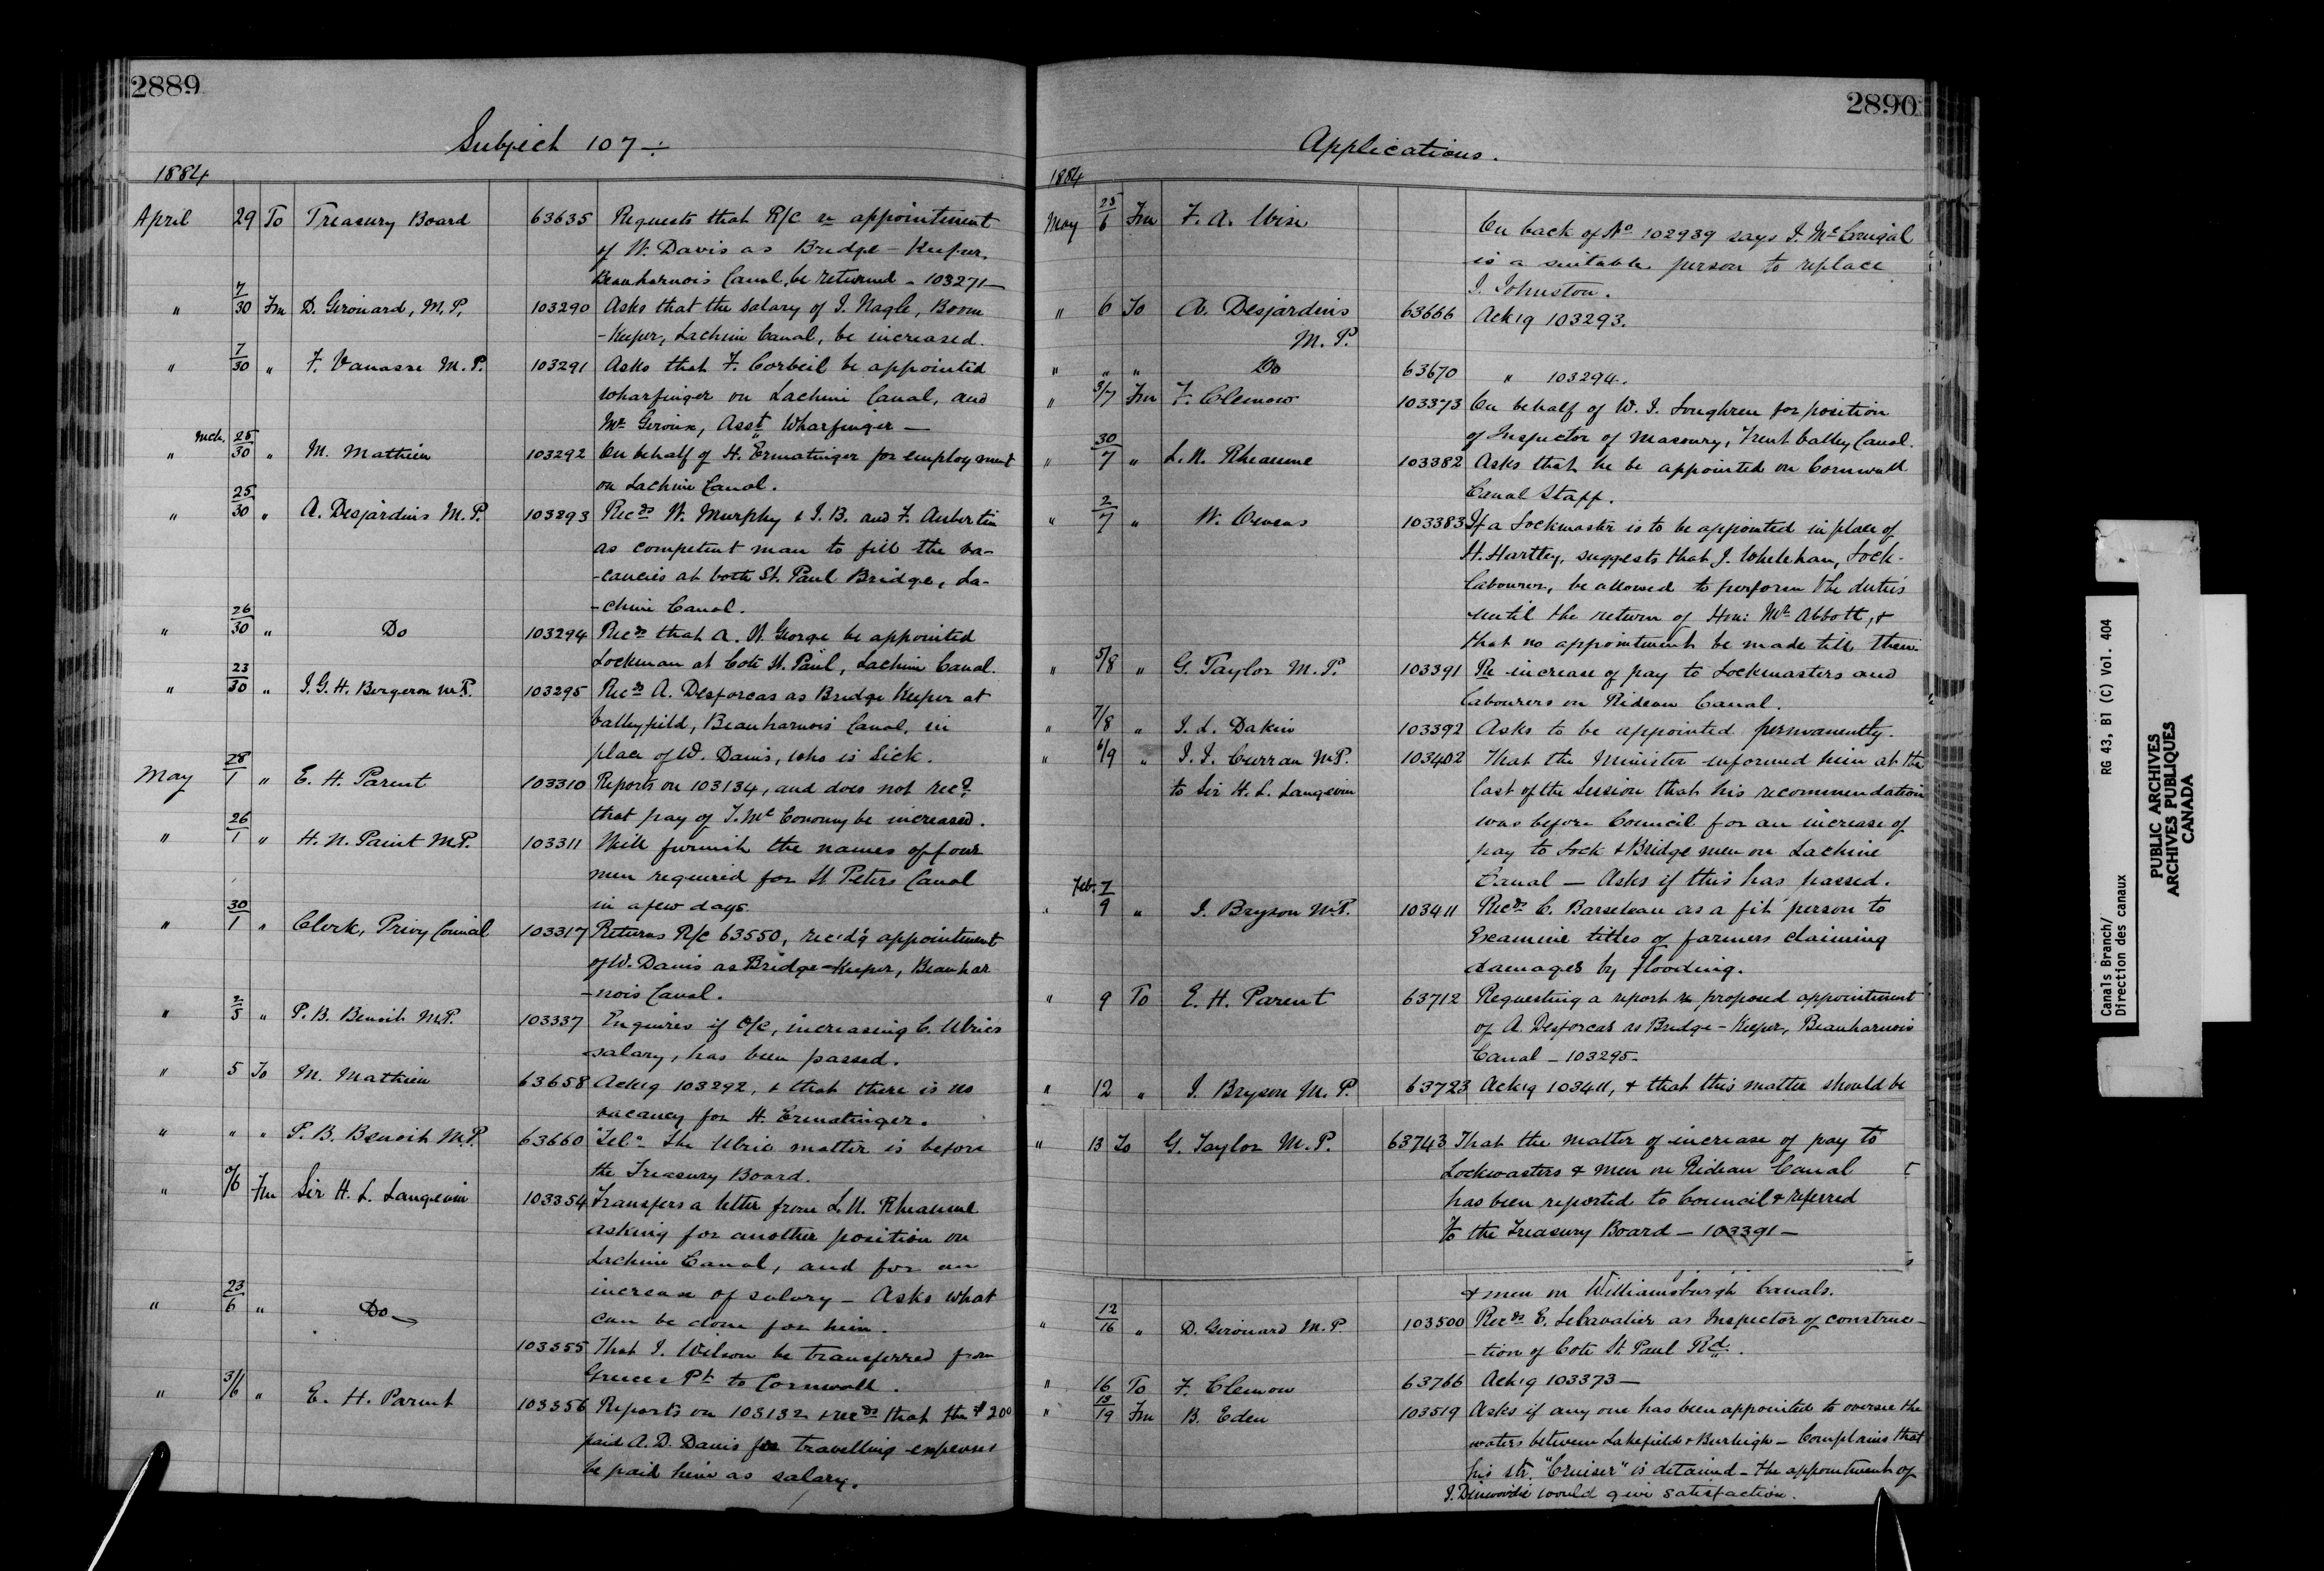 2889
Subject 107 ÷
1884
April 29 To Treasury Board 63635 Requests that R/C re appointment
of W. Davis as Bridge-Keeper,
Beauharnois Canal, be returned - 103271 -
" 7/30 Fm D. Girouard, M.P. 103290 Asks that the salary of J. Nagle, Boom
-Keeper, Lachine Canal, be increased.
" 7/30 " F. Vanasse M.P. 103291 Asks that F. Corbeil be appointed
Wharfinger on Lachine Canal, and
Mr Giroux, Asst Wharfinger —
" Mch. 25/30 " M. Mathieu 103292 On behalf of H. Ermatinger for employment
on Lachine Canal.
" 25/30 " A. Desjardins M.P. 103293 Recds W. Murphy & J.B. and F. Aubertin
as competent man to fill the va-
-cancies at both St. Paul Bridge, La-
-chine Canal.
" 26/30 " Do 103294 Recds that A. W. George be appointed
Lockman at Cote St. Paul, Lachine Canal.
" 23/30 " J.G.H. Bergeron M.P. 103295 Recds A. Desforcas as Bridge Keeper at
Valleyfield, Beauharnois Canal, in
place of W. Davis, who is sick.
May 28/1 " E. H. Parent 103310 Reports on 103134, and does not recd
that pay of T. McConomy be increased.
" 26/1 " H. N. Paint M.P. 103311 Will furnish the names of four
men required for St Peters Canal
in a few days.
" 30/1 " Clerk, Privy Council 103317 Returns R/C 63550, rec'd'g appointment
of W. Davis as Bridge-Keeper, Beauhar
-nois Canal.
" 2/5 " P.B. Benoit M.P. 103337 Enquires if O/C, increasing C. Ulric's
salary, has been passed.
" 5 To M. Mathieu 63658 Ack'g 103292, & that there is no
vacancy for H. Ermatinger.
" " " P.B. Benoit M.P. 63660 "Tel." The Ulric matter is before
the Treasury Board.
" /6 Fm Sir H. L. Langevin 103354 Transfers a letter from L.N. Rheaume
asking for another position on
Lachine Canal, and for an
increase of salary - Asks what
can be done for him.
" 23/6 " Do 103355 That J. Wilson be transferred from
Greece's Pt to Cornwall.
" 3/6 " E. H. Parent 103356 Reports on 103132 & recds that the $200
paid A.D. Davis for travelling expenses
be paid him as salary.
2890
Applications.
1884
May 25/6 Fm F. A. Wise On back of No 102939 says J. McGonigal
is a suitable person to replace
J. Johnston.
" 6 To A. Desjardins 63666 Ack'g 103293.
M.P.
" " " Do 63670 " 103294.
" 3/7 Fm F. Clemow 103373 On behalf of W. J. Loughren for position
of Inspector of Masonry, Trent Valley Canal.
" 30/7 " L.N. Rheaume 103382 Asks that he be appointed on Cornwall
Canal Staff.
" 2/7 " W. Owens 103383 If a Lockmaster is to be appointed in place of
H. Hartley, suggests that J. Whelehan, Lock-
labourer, be allowed to perform the duties
until the return of Hon: Mr Abbott, &
that no appointment be made till then.
" 5/8 " G. Taylor M.P. 103391 Re increase of pay to Lockmasters and
labourers on Rideau Canal.
" 7/8 " J. L. Dakin 103392 Asks to be appointed permanently.
" 6/9 " J. J. Curran M.P. 103402 That the Minister informed him at the
to Sir H. L. Langevin last of the Session that his recommendation
was before Council for an increase of
pay to Lock & Bridge men on Lachine
Canal — Asks if this has passed.
" Feb. 7/9 " J. Bryson M.P. 103411 Recds C. Barseleau as a fit person to
Examine titles of farmers claiming
damages by flooding.
" 9 To E. H. Parent 63712 Requesting a report re proposed appointment
of A. Desforcas as Bridge-Keeper, Beauharnois
Canal - 103295.
" 12 " J. Bryson M.P. 63723 Ack'g 103411, & that this matter should be
" 13 To G. Taylor M.P. 63743 That the matter of increase of pay to
Lockmasters & men on Rideau Canal
has been reported to Council & referred
to the Treasury Board - 103391 -
& men on Williamsburgh Canals.
" 12/16 " D. Girouard M.P. 103500 Recds E. Lecavalier as Inspector of construc-
-tion of Cote St. Paul Rd.
" 16 To F. Clemow 63766 Ack'g 103373 —
" 13/19 Fm B. Eden 103519 Asks if any one has been appointed to oversee the
waters between Lakefield & Burleigh - Complains that
his str. "Cruiser" is detained - the appointment of
J. Dinwoodie would give satisfaction.
Canals Branch/ RG 43, B1 (C) Vol. 404
Direction des canaux
PUBLIC ARCHIVES
ARCHIVES PUBLIQUES
CANADA